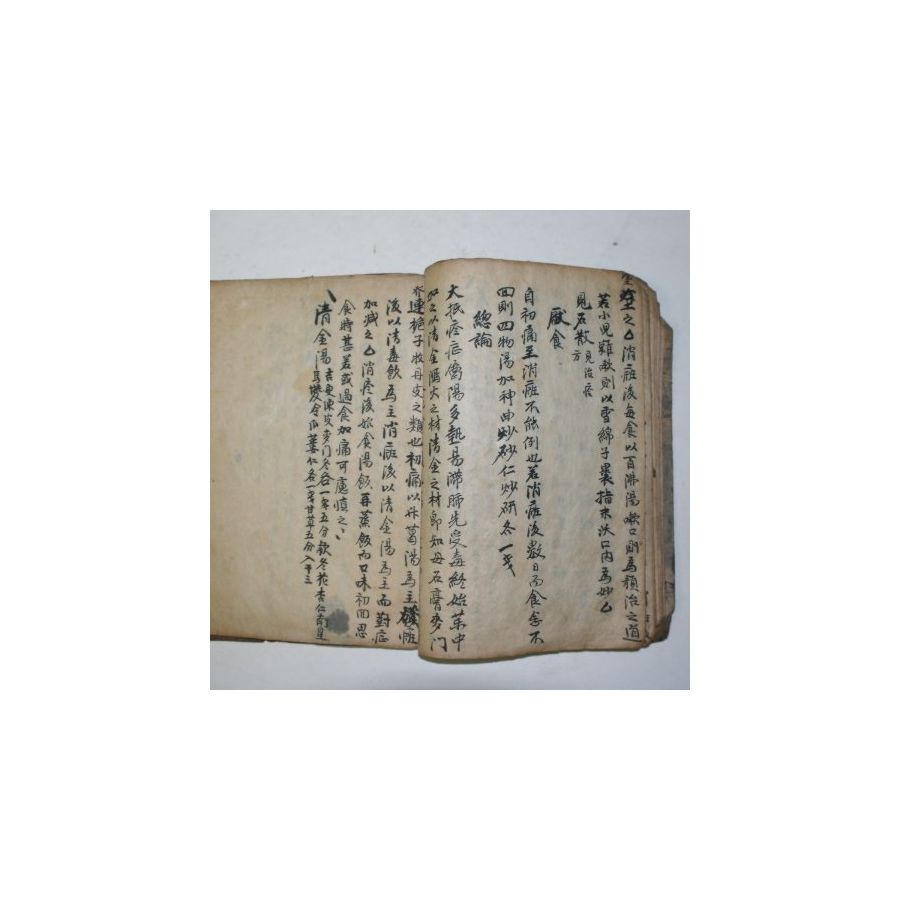 之乙消疹後每食以百沸湯嗽口則爲預治之道
若小兒難敎則以雪綿子裹指末沃口內爲妙乙
見石散 見治疹方
厭食
自初痛至消疹不能倒也若消疹後數日而食念不
回則四物湯加神曲炒砂仁炒硏各一戔
總論
大抵疹症屬陽多熱易滯肺先受毒終始藥中
加之以淸金瀉火之材淸金之材卽知母石膏麥門
連梔子牧丹皮之類也初痛以升葛湯爲主發疹
後以淸毒飮爲主消疹後以淸金湯爲主而對症
加減之乙消疹後始食湯飯再蒸飯而口味初回思
食時甚若或過食加痛可慮愼之
淸金湯 吉更陳皮麥門冬各一戔五分款冬花杏仁南星
瓜蔞仁各一戔甘草五分入干三